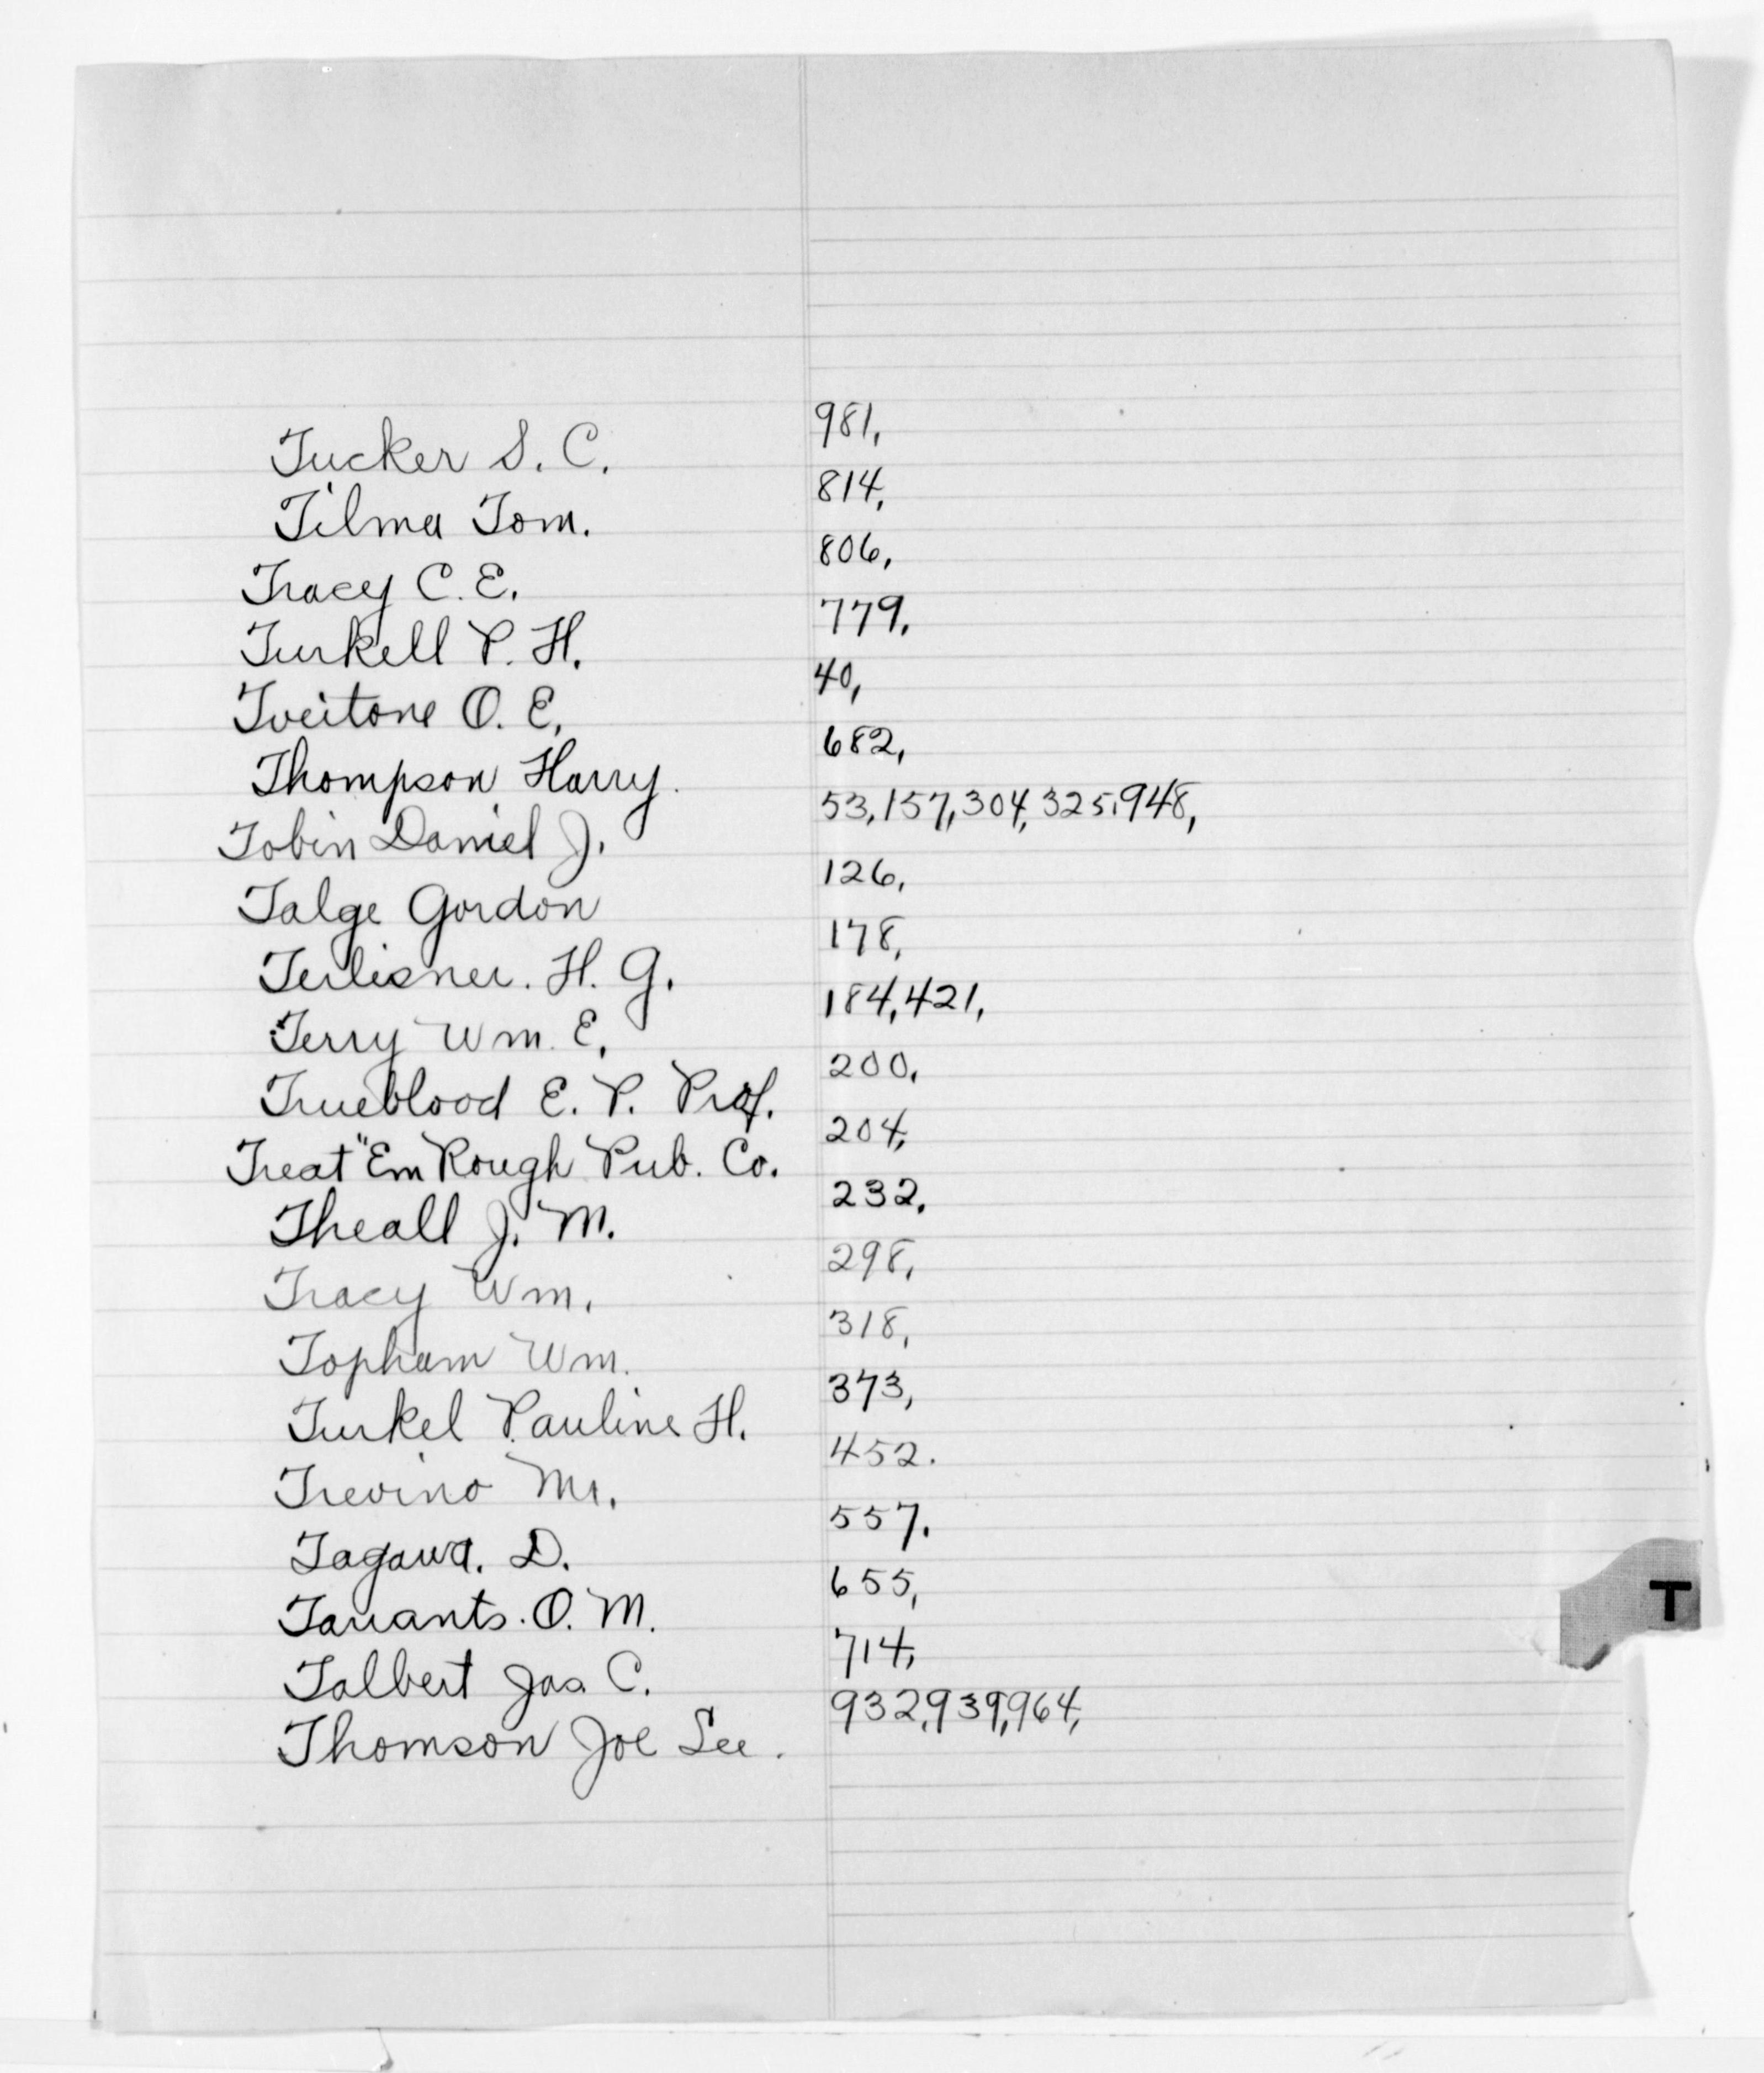 Tucker S. C. 981,
Tilma Tom. 814,
Tracy C. E. 806,
Turkell P. H. 779,
Tveitone O. E, 40,
Thompson Harry. 682,
Tobin Daniel J. 53,157,304,325,948,
Talge Gordon 126,
Terlisner. H. G. 178,
Terry Wm. E. 184,421,
Trueblood E. P. Prof. 200,
Treat "Em Rough Pub. Co. 204,
Theall J. M. 232,
Tracy Wm. 298,
Topham Wm. 318,
Turkel Pauline H. 373,
Trevino Mr. 452.
Tagawa. D. 557.
Tarrants. O. M. 655,
Talbert Jas. C. 714,
Thomson Joe Lee. 932,939,964,
T